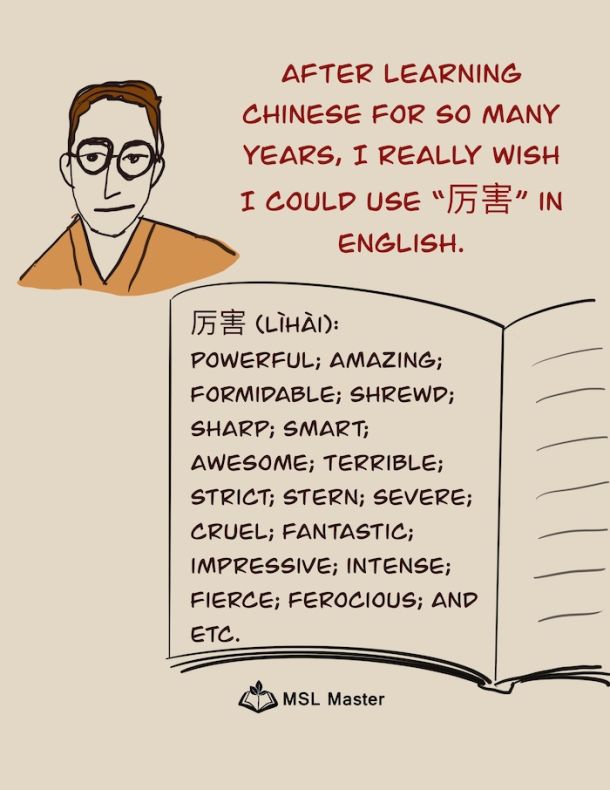 AFTER LEARNING
CHINESE FOR SO MANY
YEARS, I REALLY WISH
I COULD USE “厉害” IN
ENGLISH.
厉害 (LÌHÀI):
POWERFUL; AMAZING;
FORMIDABLE; SHREWD;
SHARP; SMART;
AWESOME; TERRIBLE;
STRICT; STERN; SEVERE;
CRUEL; FANTASTIC;
IMPRESSIVE; INTENSE;
FIERCE; FEROCIOUS; AND
ETC.
MSL Master